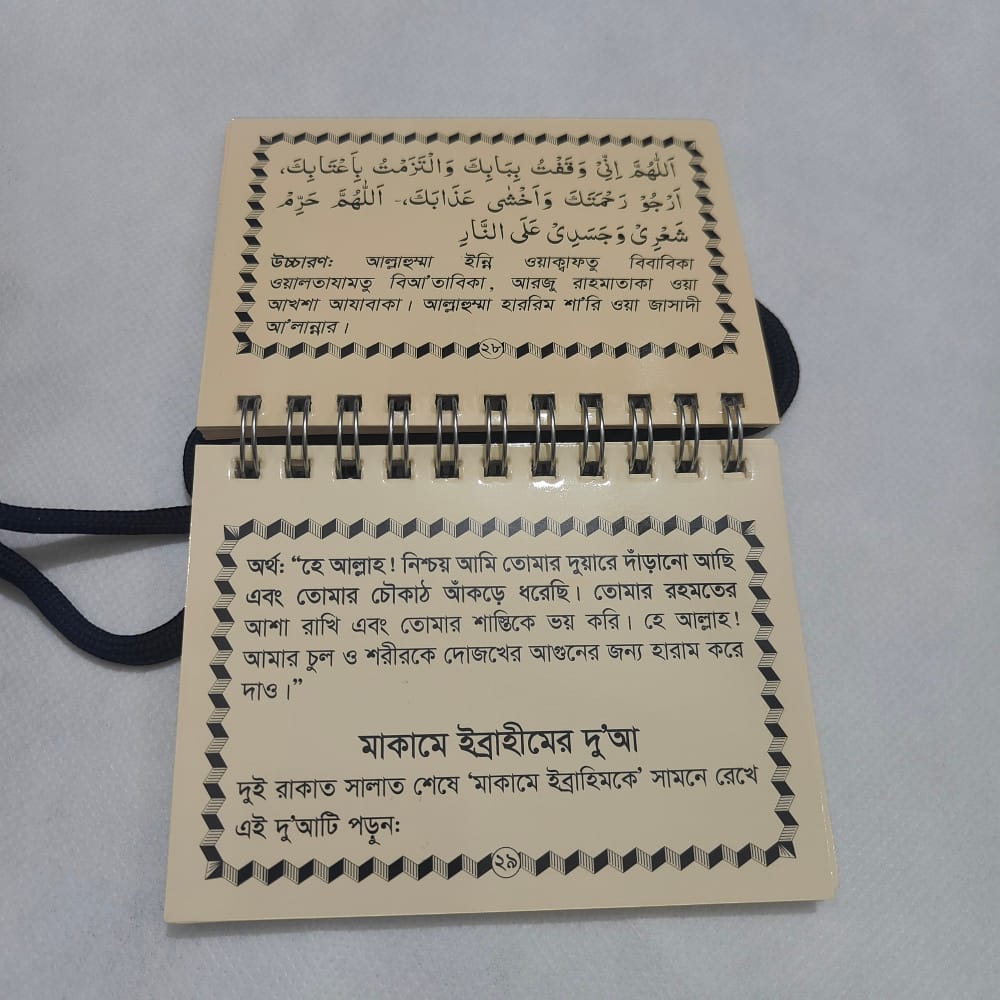 اَللّٰهُمَّ اِنِّيْ وَقَفْتُ بِبَابِكَ وَالْتَزَمْتُ بِاَعْتَابِكَ،
اَرْجُوْ رَحْمَتَكَ وَاَخْشٰى عَذَابَكَ،- اَللّٰهُمَّ حَرِّمْ
شَعْرِيْ وَجَسَدِيْ عَلَى النَّارِ
উচ্চারণ: আল্লাহুম্মা ইন্নি ওয়াক্বাফতু বিবাবিকা
ওয়ালতাযামতু বিআ'তাবিকা, আরজু রাহমাতাকা ওয়া
আখশা আযাবাকা। আল্লাহুম্মা হাররিম শা'রি ওয়া জাসাদী
আ'লান্নার।
২৮
অর্থ: “হে আল্লাহ! নিশ্চয় আমি তোমার দুয়ারে দাঁড়ানো আছি
এবং তোমার চৌকাঠ আঁকড়ে ধরেছি। তোমার রহমতের
আশা রাখি এবং তোমার শাস্তিকে ভয় করি। হে আল্লাহ!
আমার চুল ও শরীরকে দোজখের আগুনের জন্য হারাম করে
দাও।”
মাকামে ইব্রাহীমের দু'আ
দুই রাকাত সালাত শেষে ‘মাকামে ইব্রাহিমকে’ সামনে রেখে
এই দু'আটি পড়ুন:
২৯